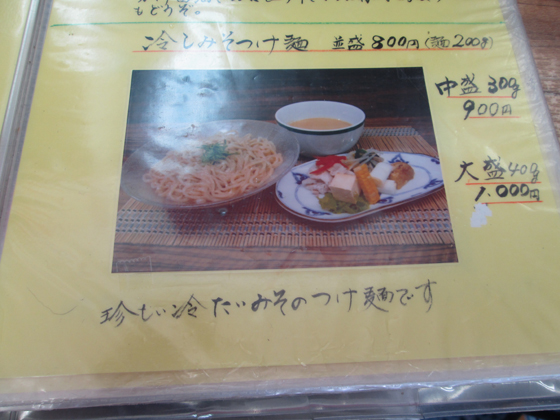 もどうぞ。
冷しみそつけ麺 並盛800円(麺200g)
中盛300g
900円
大盛400g
1.000円
珍しい冷たいみそのつけ麺です